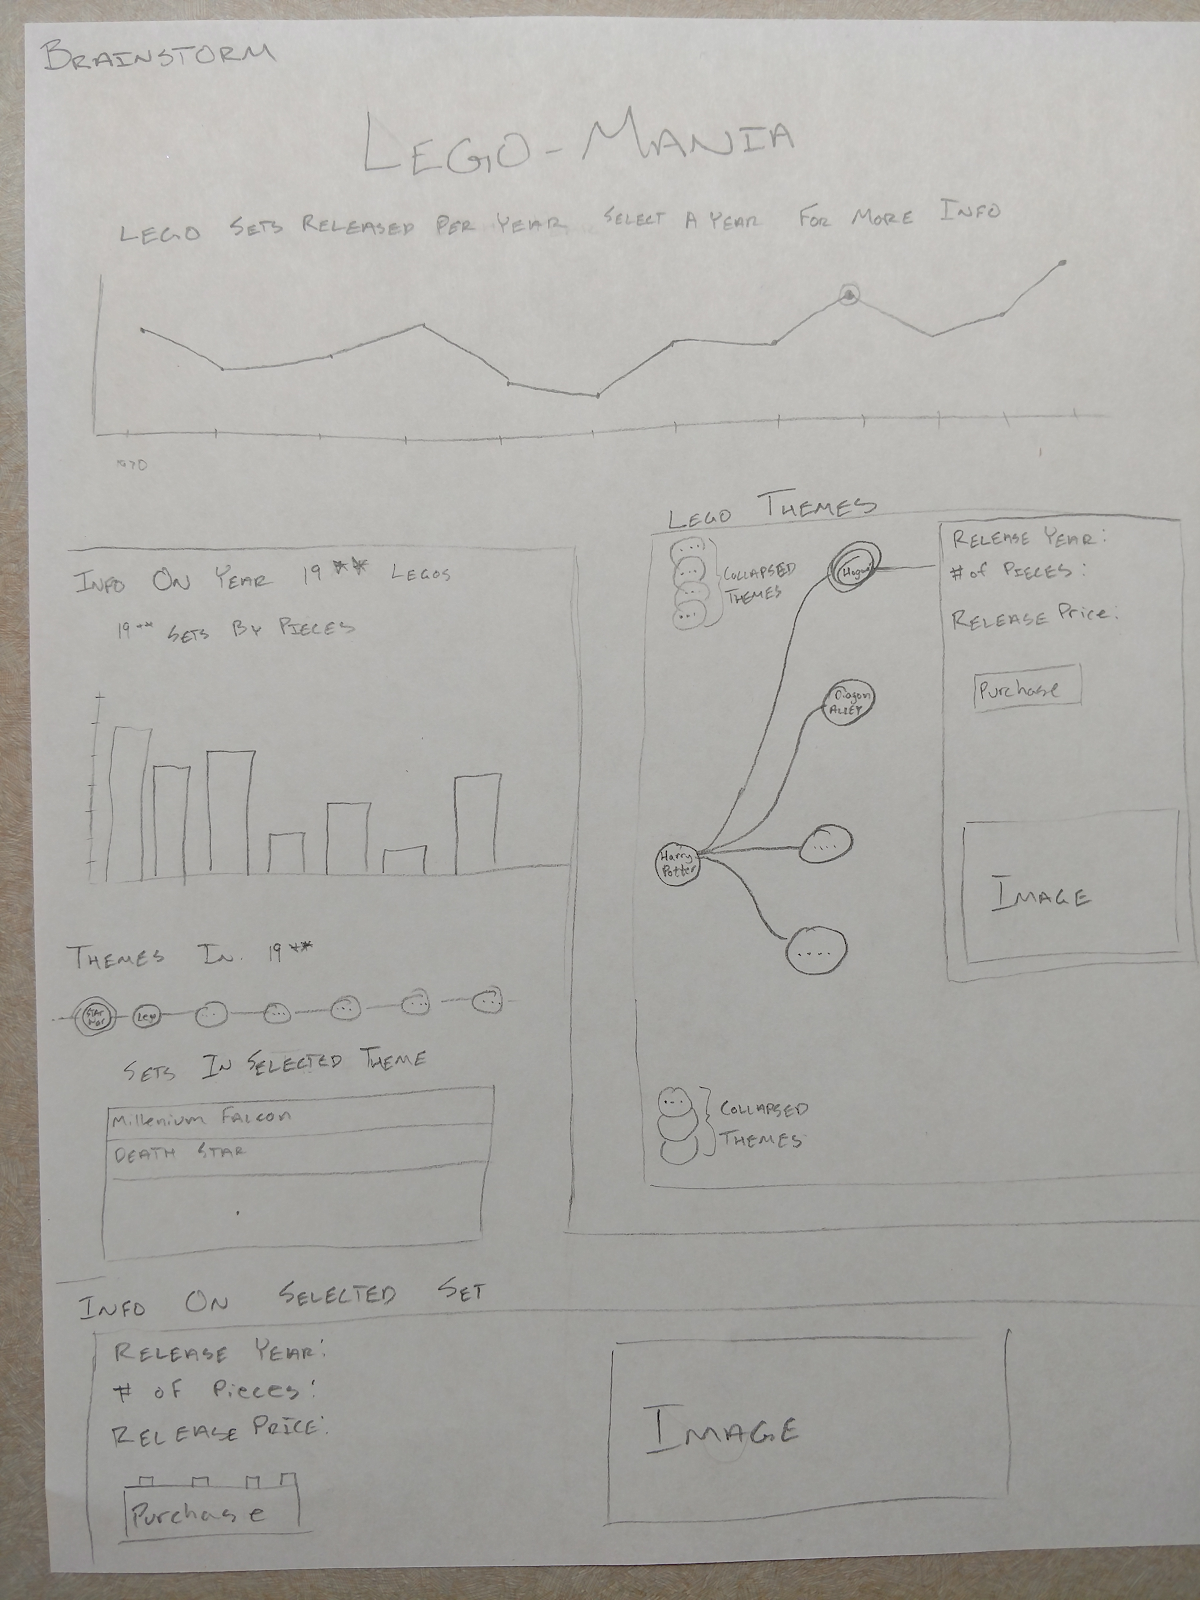 BRAINSTORM
LEGO-MANIA
LEGO SETS RELEASED PER YEAR SELECT A YEAR FOR MORE INFO
1970
INFO ON YEAR 19** LEGOS
19** SETS BY PIECES
THEMES IN 19**
STAR WAR
Lego
...
...
...
...
...
SETS IN SELECTED THEME
Millenium FALCON
DEATH STAR
LEGO THEMES
...
...
...
...
COLLAPSED
THEMES
Diagon
ALLEY
Harry
Potter
....
....
RELEASE YEAR:
# of PIECES:
RELEASE Price:
Purchase
IMAGE
...
COLLAPSED
THEMES
INFO ON SELECTED SET
RELEASE YEAR:
# OF PiECES:
RELEASE PRICE:
Purchase
IMAGE